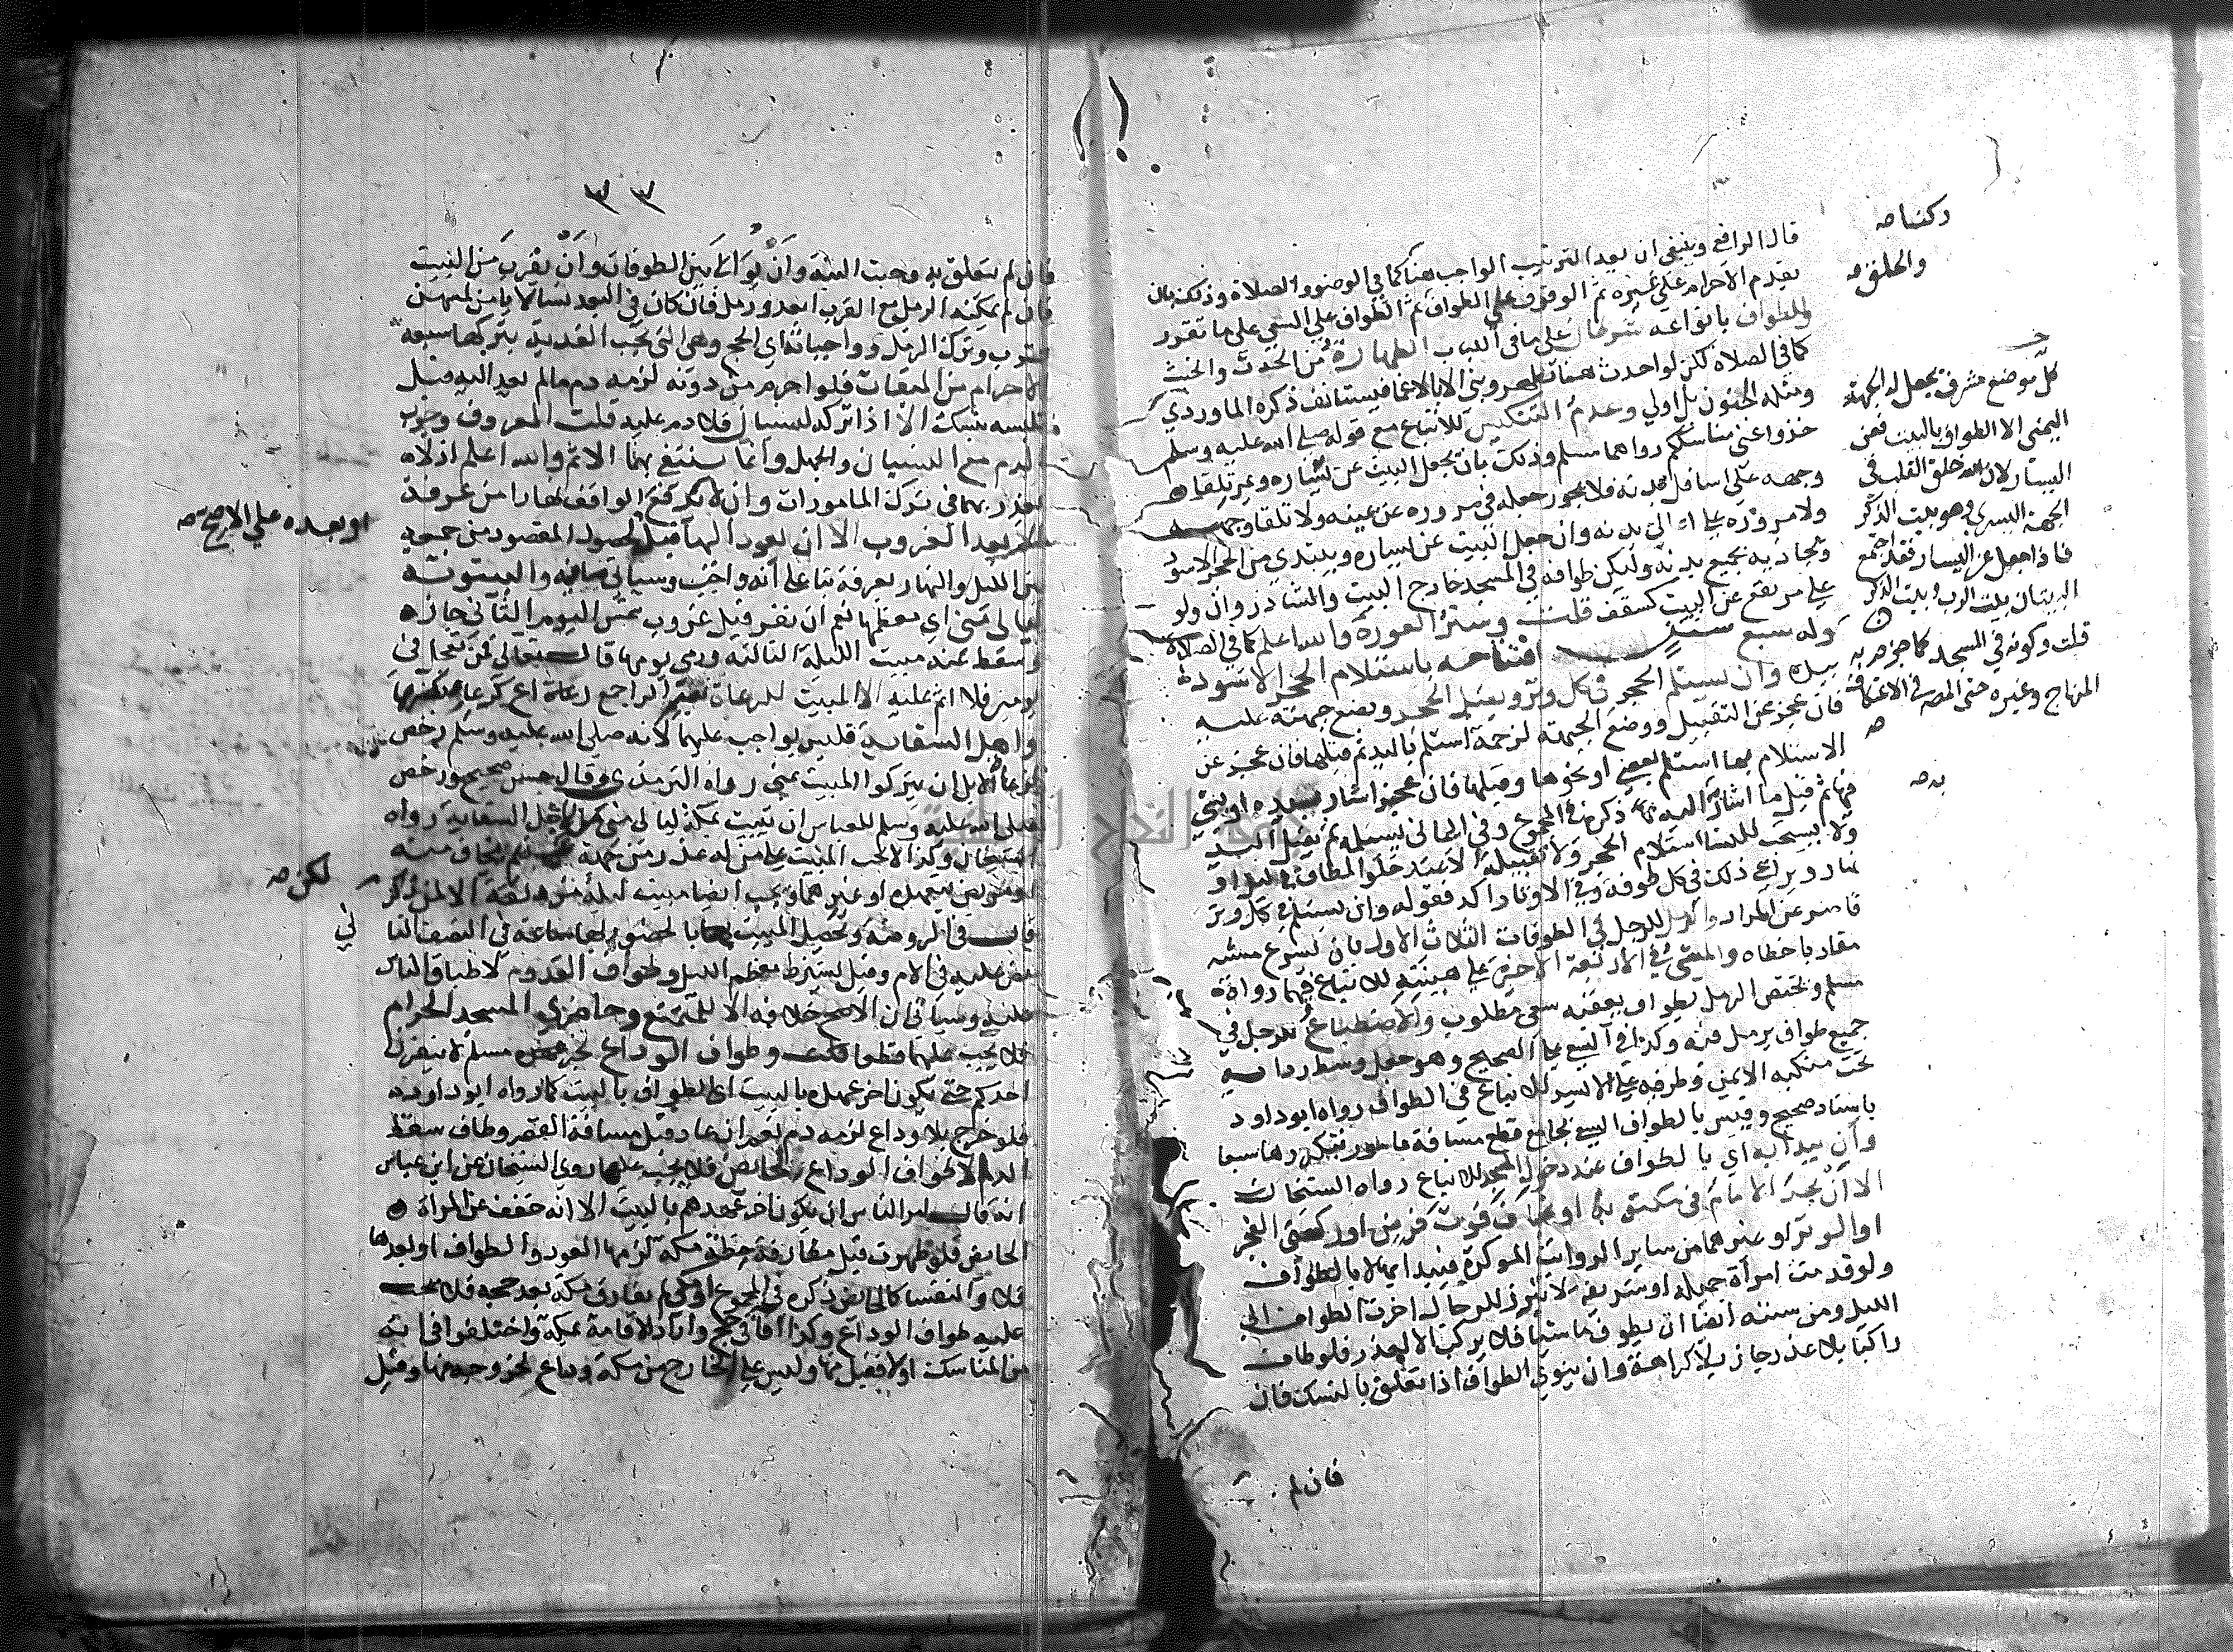 قال الرافعي وينبغي ان يعد الترتيب الواجب هنا كما في الوضوء والصلاة وذلك بان
يقدم الاحرام علي غيره ثم الوقوف علي الطواف ثم الطواف علي السعي علي ما تقرر
وللطواف بانواعه شرطان علي ما في اللباب الطهارة من الحدث والخبث
كما في الصلاة لكن لو احدث يتطهر ويبني الا بالاغما فيستانف ذكره الماوردي
ومثله الجنون بل اولي وعدم التنكيس للاتباع مع قوله صلي الله عليه وسلم
خذوا عني مناسككم رواهما مسلم وذلك بان يجعل البيت عن يساره ويمر تلقاه
وجهه علي اسافل بدنه فلا يجوز جعله في مروره عن يمينه ولا تلقا وجهه
ولا مروره الي بدنه وان جعل البيت عن يساره ويبتدي من الحجر الاسود
ويحاذيه بجميع بدنه وليكن طوافه في المسجد خارج البيت والشاذروان ولو
علي مرتفع عن البيت كسقف قلت وستر العورة والله اعلم كما في الصلاة
وله سبع سنن افتتاحه باستلام الحجر الاسود
بيده وان يستلم الحجر في كل وتر ويقبل الحجر ويضع جبهته عليه
فان عجز عن التقبيل ووضع الجبهة لزحمة استلم باليد ثم قبلها فان عجز عن
الاستلام بها استلم بعصي او نحوها وقبلها فان عجز اشار بيده او بشي
فيها ثم قبل ما اشار اليه ذكره في المجموع
ولا يستحب للنسا استلام الحجر ولا تقبيله الا عند خلو المطاف في ليل او
نهار ويراعي ذلك في كل طوفة وفي الاوتار اكد فقوله وان يستلم في كل وتر
قاصر عن المراد والرمل للرجل في الطوفات الثلاث الاول بان يسرع مشيه
مقاربا خطاه والمشي في الاربعة الاخيرة علي هينته للاتباع فيهما رواه
مسلم ويختص الرمل بطواف يعقبه سعي مطلوب والاضطباع للرجل في
جميع طواف يرمل فيه وكذا في السعي علي الصحيح وهو جعل وسط ردايه
تحت منكبه الايمن وطرفه علي الايسر للاتباع في الطواف رواه ابو داود
باسناد صحيح وقيس بالطواف السعي بجامع قطع مسافة مامور بتكررها سبعا
وان يبدا به اي بالطواف عند دخول المسجد للاتباع رواه الشيخان
الا ان يجد الامام في مكتوبة او يخاف فوت فرض او ركعتي الفجر
او الوتر او غيرهما من ساير الرواتب الموكدة فيبدا بها لا بالطواف
ولو قدمت امراة جميلة او شريفة لا تبرز للرجال اخرت الطواف الي
الليل ومن سننه ايضا ان يطوف ماشيا فلا يركب الا لعذر فلو طاف
راكبا بلا عذر جاز بلا كراهة وان ينوي الطواف اذا تعلق بالنسك فان
فان لم
ركنا صه
والحلق صه
كل موضع شرف يجعل له الجهة
اليمني الا الطواف بالبيت فعن
اليسار لان الله خلق القلب في
الجهة اليسري وهو بيت الذكر
فاذا جعل عن اليسار فقد اجتمع
البيتان بيت الرب وبيت الذكر
قلت وكونه في المسجد كما جزم به
المنهاج وغيره حتي المصـ في الاعتكاف
صه
به صه
٣٣
فان لم يتعلق به وجبت النية وان يوالي بين الطوفات وان يقرب من البيت
فان لم يمكنه الرمل مع القرب ابعد ورمل فان كان في البعد نسا لا يامن لمسهن
قرب وترك الرمل وواجباته اي الحج وهي التي تجب الفدية بتركها سبعة
الاحرام من الميقات فلو احرم من دونه لزمه دم ما لم يعد اليه قبل
تلبسه بنسك الا اذا تركه لنسيان فلا دم عليه قلت المعروف وجوب
الدم مع النسيان والجهل وانما ينتفي بهما الاثم والله اعلم اذ لا
يعذر بهما في ترك المامورات وان لا يدفع الواقف نهارا من عرفة
بعد الغروب الا ان يعود اليها قبل لحصول المقصود من جمعه
بين الليل والنهار بعرفة بنا علي انه واجب وسياتي ما فيه والبيتوتة
ليالي مني اي معظمها نعم ان نفر قبل غروب شمس اليوم الثاني جاز
وسقط عنه مبيت الليلة الثالثة ورمي يومها قال تعالي فمن تعجل في
يومين فلا اثم عليه الا المبيت للرعاة
واهل السقاية فليس بواجب عليهما لانه صلي الله عليه وسلم رخص
لرعاة الابل ان يتركوا المبيت بمني رواه الترمذي وقال حسن صحيح ورخص
صلي الله عليه وسلم للعباس ان يبيت بمكة ليالي مني من اجل السقاية رواه
الشيخان وكذا لا يجب المبيت علي من له عذر
ويجب ايضا مبيت ليلة مزدلفة الا لمن ذكر
قال في الروضة ويحصل المبيت بها بالحضور بها ساعة في النصف الثا
نص عليه في الام وقيل يشترط معظم الليل وطواف القدوم لاطباق الناس
عليه وسياتي ان الاصح خلافه الا للمتمتع وحاضري المسجد الحرام
فلا يجب عليهما قطعا وطواف الوداع لخبر مسلم لا ينفرن
احدكم حتي يكون اخر عهده بالبيت اي الطواف بالبيت كما رواه ابو داود
فلو خرج بلا وداع لزمه دم نعم ان عاد قبل مسافة القصر وطاف سقط
الدم الا طواف الوداع للحائض فلا يجب عليها روي الشيخان عن ابن عباس
انه قال امر الناس ان يكون اخر عهدهم بالبيت الا انه خفف عن المراة
الحائض فلو طهرت قبل مفارقة خطة مكة لزمها العود والطواف او بعدها
فلا والنفسا كالحائض ذكره في المجموع ومكي لم يفارق مكة بعد حجه فلا يجب
عليه طواف الوداع وكذا افاقي حج واراد الاقامة بمكة واختلفوا في انه
من المناسك او لا فقيل منها وليس علي الخارج من مكة وداع لخروجه منها وقيل
او بعده علي الارجح صه
لكن صه
ني